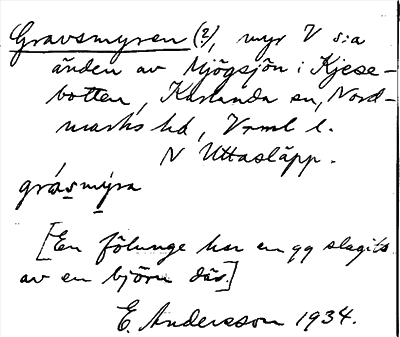 Gravsmyren (?), myr V s:a
änden av Mjögsjön i Kjese-
botten, Karlanda sn, Nord-
marks hd, Vrml l.
N Uttasläpp.
gräsmýra
[En fölunge har en gg slagits
av en björn där.]
E. Andersson 1934.